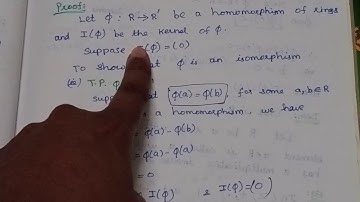 Proof:
Let ϕ : R → R' be a homomorphism of rings
and I(ϕ) be the kernel of ϕ.
Suppose (ϕ) = (0)
To show ϕ is an isomorphism
T.P. ϕ
ϕ(a) = ϕ(b), for some a, b ∈ R
a homomorphism, we have
ϕ(a) - ϕ(b)
= ϕ(a) - ϕ(a)
= 0
I(ϕ) I(ϕ) = (0)